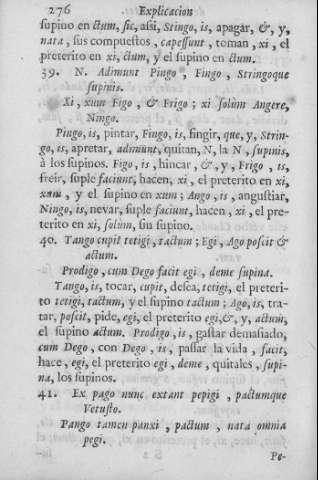 276 Explicacion
supino en ctum, sic, assi, Stingo, is, apagar, &, y,
nata, sus compuestos, capessunt, toman, xi, el
preterito en xi, ctum, y el supino en ctum.
39. N. Adimunt Pingo, Fingo, Stringoque
supinis.
Xi, xum Figo, & Frigo; xi solùm Angere,
Ningo.
Pingo, is, pintar, Fingo, is, fingir, que, y, Strin-
go, is, apretar, adimunt, quitan, N, la N, supinis,
à los supinos. Figo, is, hincar, &, y, Frigo, is,
freir, suple faciunt, hacen, xi, el preterito en xi,
xum, y el supino en xum; Ango, is, angustiar,
Ningo, is, nevar, suple faciunt, hacen, xi, el pre-
terito en xi, solùm, sin supino.
40. Tango cupit tetigi, tactum; Egi, Ago poscit &
actum.
Prodigo, cum Dego facit egi, deme supina.
Tango, is, tocar, cupit, desea, tetigi, el preteri-
to tetigi, tactum, y el supino tactum; Ago, is, tra-
tar, poscit, pide, egi, el preterito egi, &, y, actum,
el supino actum. Prodigo, is, gastar demasiado,
cum Dego, con Dego, is, passar la vida, facit,
hace, egi, el preterito egi, deme, quitales, supi-
na, los supinos.
41. Ex pago nunc extant pepigi, pactumque
Vetusto.
Pango tamen panxi, pactum, nata omnia
pegi.
Pe-